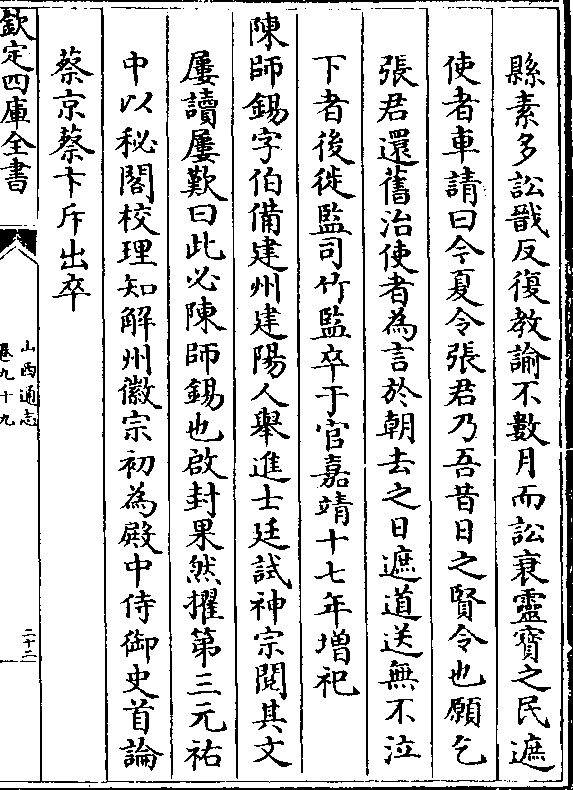 縣素多訟戢反復教諭不數月而訟衰靈寳之民遮
使者車請曰今夏令張君乃吾昔日之賢令也願乞
張君還舊治使者為言於朝去之日遮道送無不泣
下者後徙監司竹監卒于官嘉靖十七年增祀
陳師錫字伯脩建州建陽人舉進士廷試神宗閱其文
屢讀屢歎曰此必陳師錫也啟封果然擢第三元祐
中以秘閣校理知解州徽宗初為殿中侍御史首論
蔡京蔡卞斥出卒
欽定四庫全書
山西通志
卷九十九
二十二